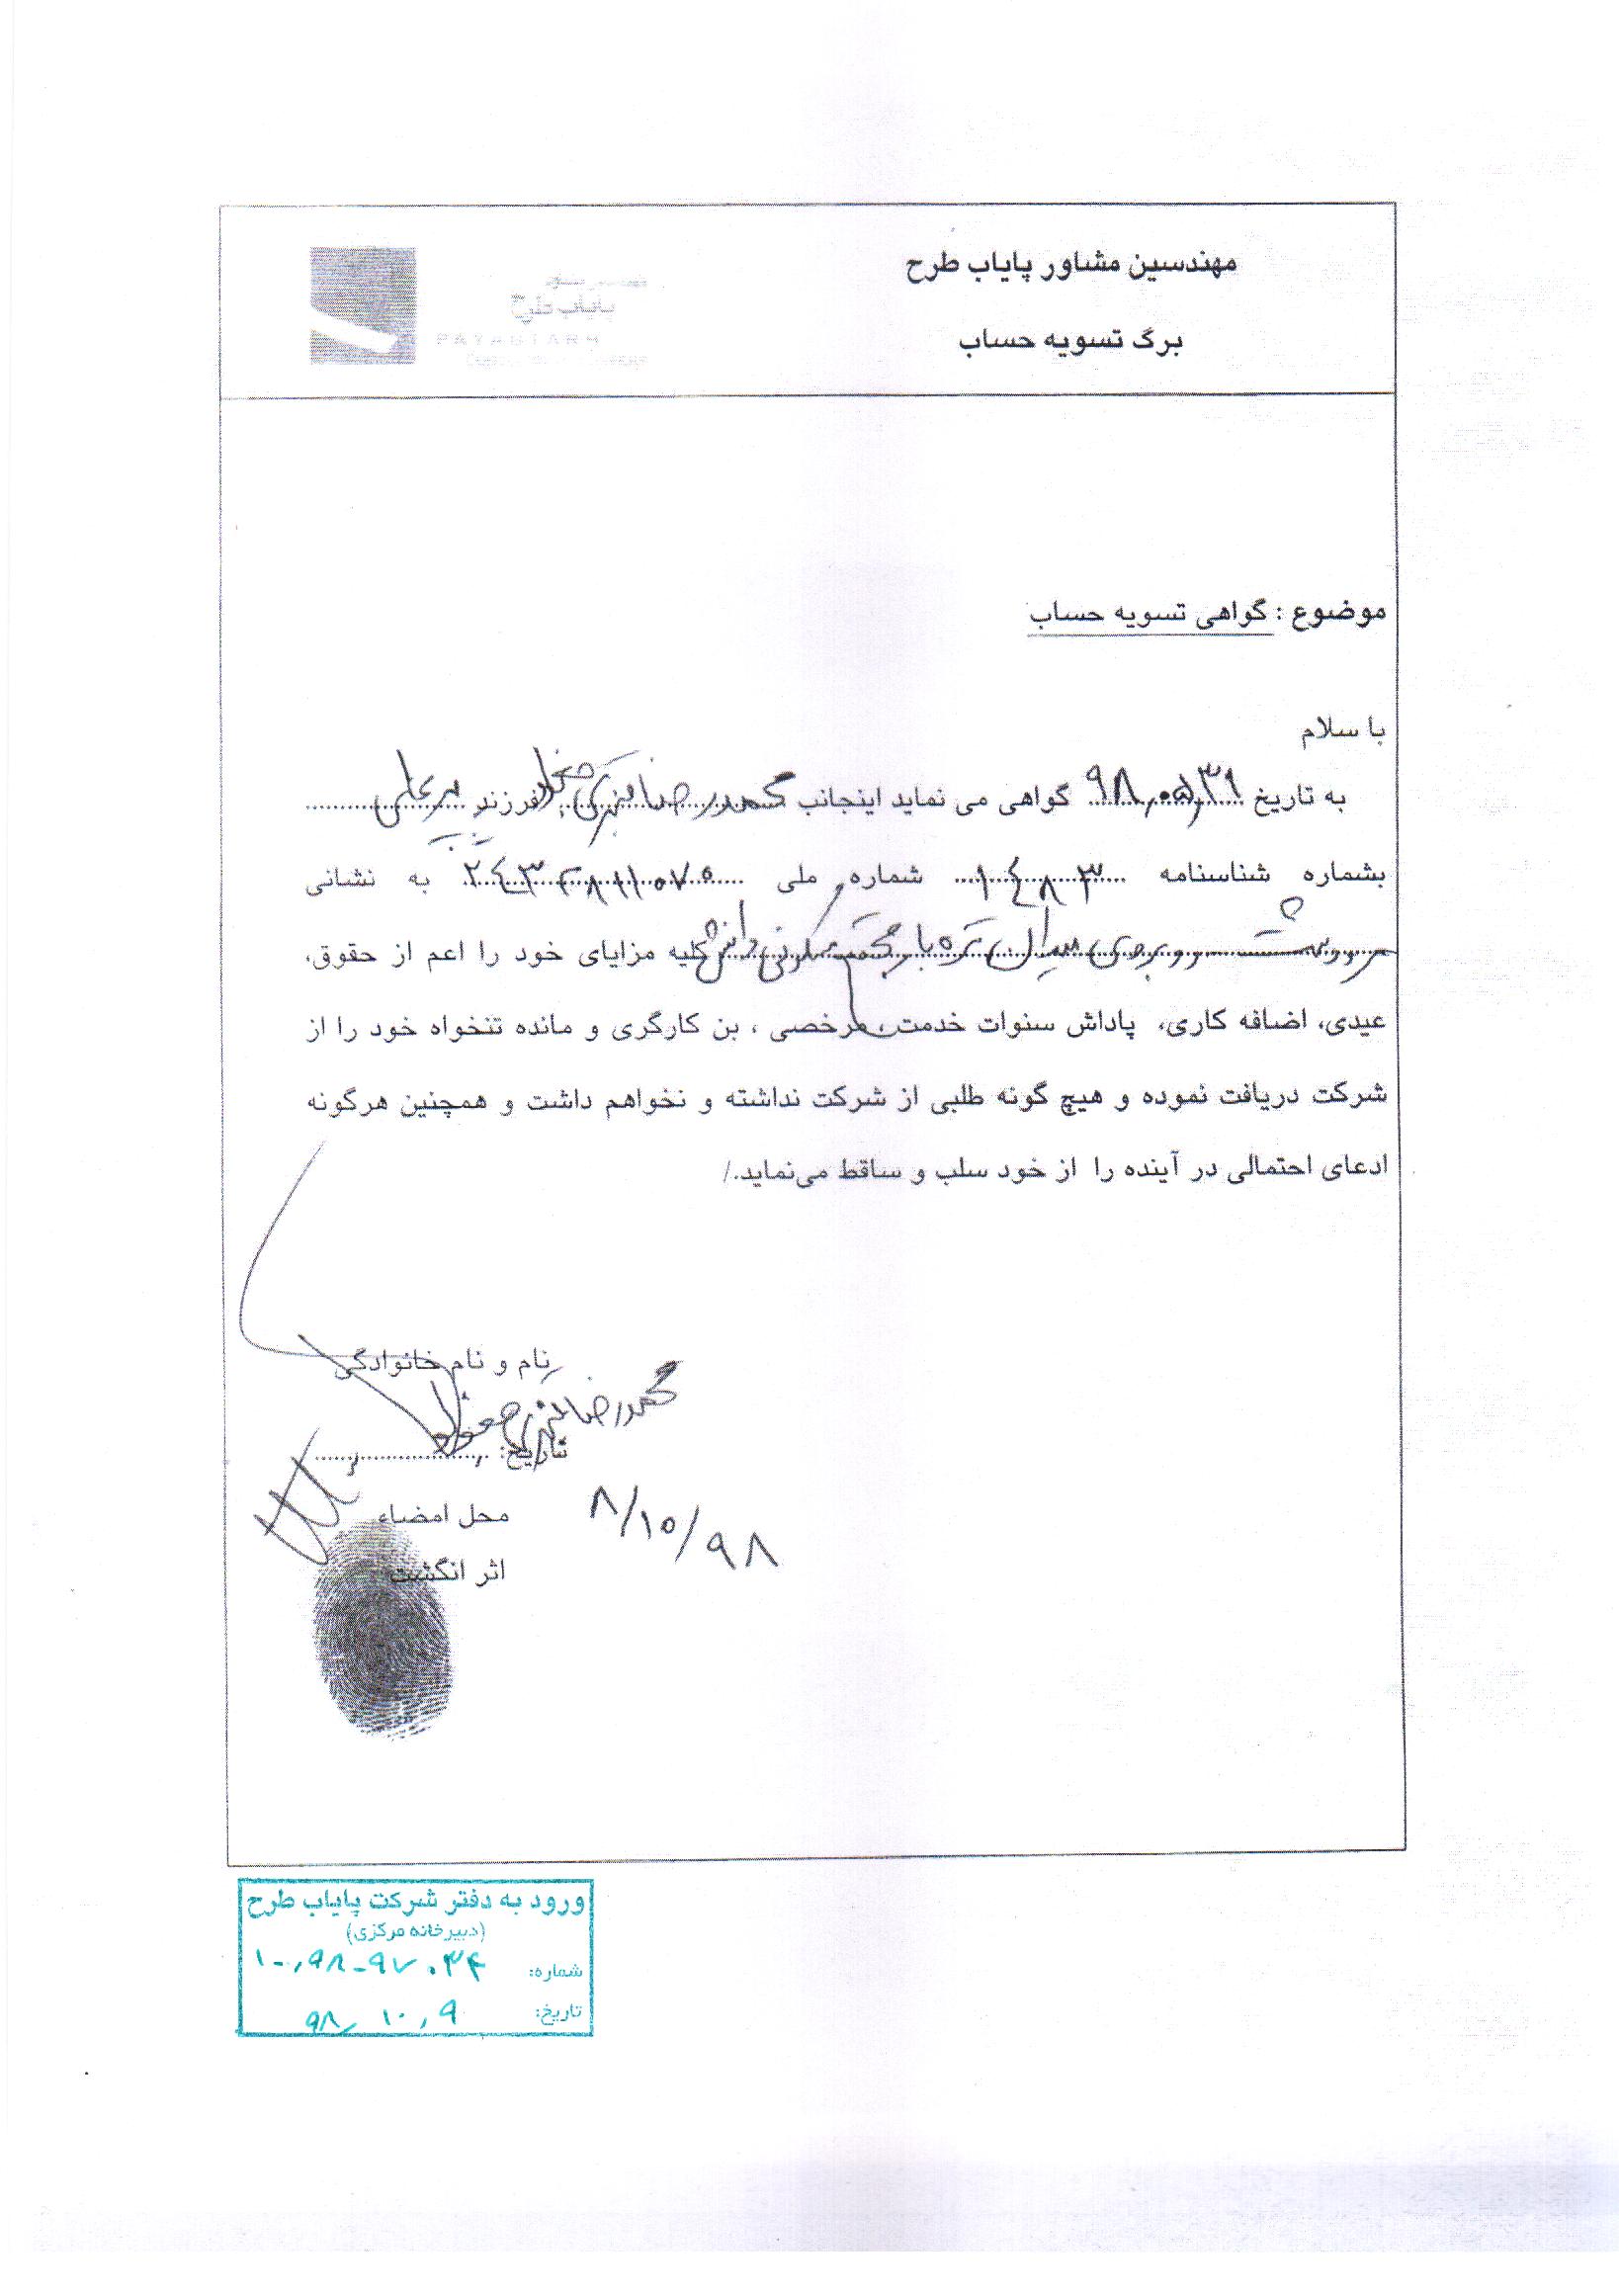 مهندسین مشاور پایاب طرح
پایاب طرح
PAYABTARH
برگ تسویه حساب
موضوع : گواهی تسویه حساب
با سلام
به تاریخ ۹۸,۰۵,۳۱ گواهی می نماید اینجانب محمدرضا فرزند
بشماره شناسنامه ۱۴۸۳ شماره ملی به نشانی
مرودشت روبروی میدان تره بار مجتمع مسکونی دانش کلیه مزایای خود را اعم از حقوق،
عیدی، اضافه کاری، پاداش سنوات خدمت، مرخصی ، بن کارگری و مانده تنخواه خود را از
شرکت دریافت نموده و هیچ گونه طلبی از شرکت نداشته و نخواهم داشت و همچنین هرگونه
ادعای احتمالی در آینده را از خود سلب و ساقط می‌نماید./
نام و نام خانوادگی
محمدرضا
تاریخ:
۸/۱۰/۹۸
محل امضاء
اثر انگشت
ورود به دفتر شرکت پایاب طرح
(دبیرخانه مرکزی)
شماره: ۱۰,۹۸-۹۷۰۳۴
تاریخ: ۹۸,۱۰,۹